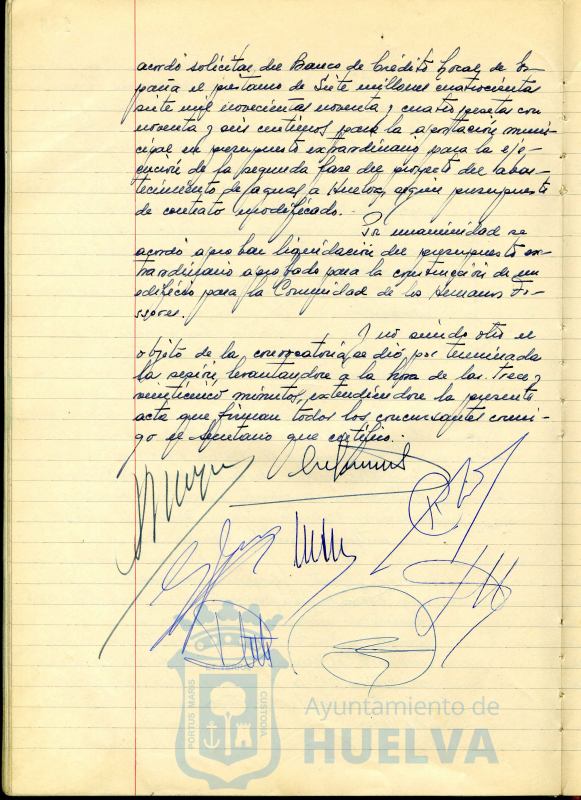 acordó solicitar del Banco de Crédito Local de Es-
paña el préstamo de Siete millones cuatrocientas
siete mil novecientas noventa y cuatro pesetas con
noventa y seis centimos para la aportación muni-
cipal en presupuesto extraordinario para la eje-
cución de la segunda fase del proyecto del abas-
tecimiento de aguas a Huelva, según presupuesto
de contrato modificado.
Por unanimidad se
acordó aprobar liquidación del presupuesto ex-
traordinario aprobado para la construcción de un
edificio para la Comunidad de los Hermanos Fo-
ssores.
Y no siendo otro el
objeto de la convocatoria, se dió por terminada
la sesión, levantandose a la hora de las trece y
veinticinco minutos, extendiendose la presente
acta que firman todos los concursantes conmi-
go el Secretario que certifico.
PORTUS MARIS
CUSTODIA
Ayuntamiento de
HUELVA